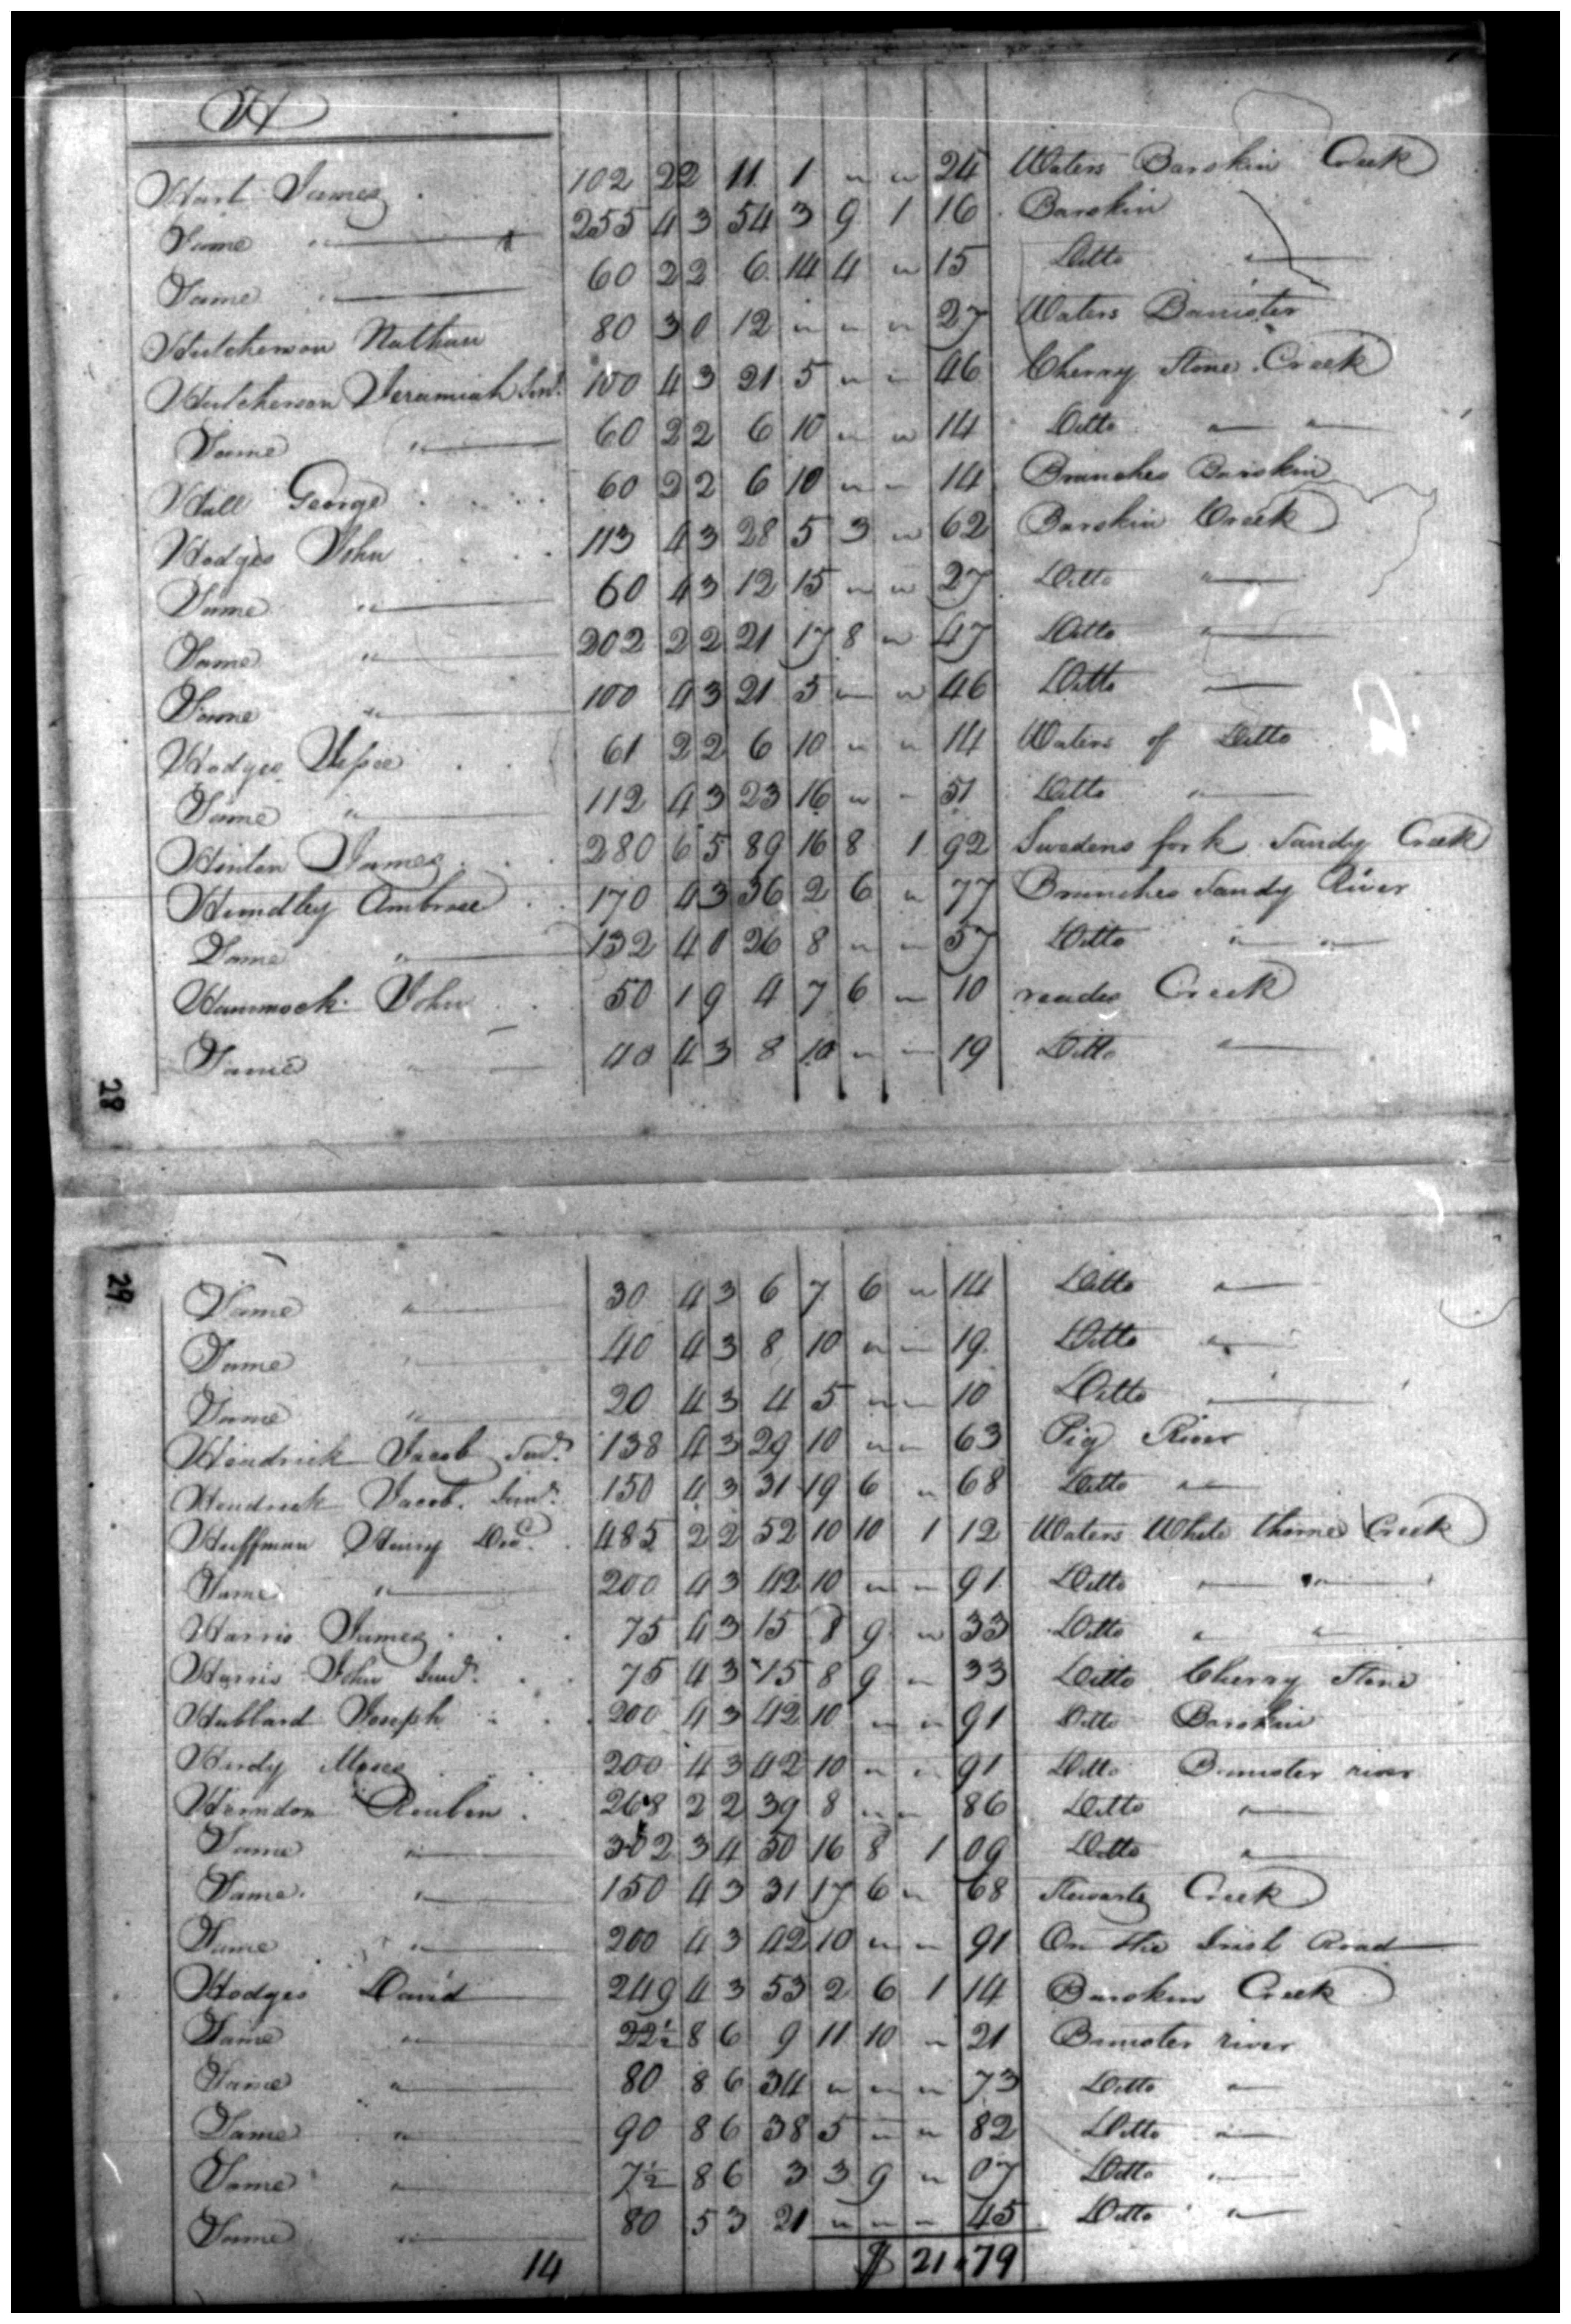 H
Hart James 102 22 11 1 " " 24 Waters Barskin Creek
Same " 255 4 3 54 3 9 1 16 Barskin
Same " 60 2 2 6 14 4 " 15 Ditto "
Hutcherson Nathan 80 3 0 12 " " " 27 Waters Banister
Hutcherson Jeremiah Senr. 100 4 3 21 5 " " 46 Cherry Stone Creek
Same " 60 2 2 6 10 " " 14 Ditto " "
Hall George 60 2 2 6 10 " " 14 Branches Barskin
Hodges John 113 4 3 28 5 3 " 62 Barskin Creek
Same " 60 4 3 12 15 " " 27 Ditto "
Same " 202 2 2 21 17 8 " 47 Ditto "
Same " 100 4 3 21 5 " " 46 Ditto
Hodges Jesse 61 2 2 6 10 " " 14 Waters of Ditto
Same " 112 4 3 23 16 " " 51 Ditto "
Hinton James 280 6 5 89 16 8 1 92 Swedens fork Sandy Creek
Hundley Ambrose 170 4 3 36 2 6 " 77 Branches Sandy River
Same " 132 4 0 26 8 " " 57 Ditto " "
Hammock John 50 1 9 4 7 6 " 10 reades Creek
Same " 40 4 3 8 10 " " 19 Ditto "
28
29
Same " 30 4 3 6 7 6 " 14 Ditto "
Same " 40 4 3 8 10 " " 19 Ditto "
Same " 20 4 3 4 5 " " 10 Ditto
Hendrick Jacob Junr. 138 4 3 29 10 " " 63 Pig River
Hendrick Jacob Senr. 150 4 3 31 19 6 " 68 Ditto "
Huffman Henry Decd. 485 2 2 52 10 10 1 12 Waters White thorne Creek
Same " 200 4 3 42 10 " " 91 Ditto " "
Harris James 75 4 3 15 8 9 " 33 Ditto " "
Harris John Senr. 75 4 3 15 8 9 " 33 Ditto Cherry Stone
Hubbard Joseph 200 4 3 42 10 " " 91 Ditto Barskin
Hurdy Moses 200 4 3 42 10 " " 91 Ditto Banister river
Herndon Reuben 268 2 2 39 8 " " 86 Ditto "
Same " 302 3 4 50 16 8 1 09 Ditto "
Same " 150 4 3 31 17 6 " 68 Stewarts Creek
Same " 200 4 3 42 10 " " 91 On the Irish Road
Hodges David 249 4 3 53 2 6 1 14 Barskin Creek
Same " 22½ 8 6 9 11 10 " 21 Banister river
Same " 80 8 6 34 " " " 73 Ditto "
Same " 90 8 6 38 5 " " 82 Ditto "
Same " 7½ 8 6 3 3 9 " 07 Ditto "
Same " 80 5 3 21 " " " 45 Ditto "
14 $ 21.79